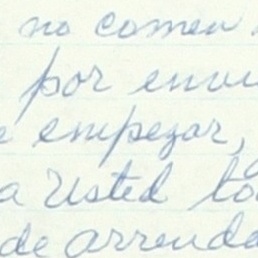 no comen
por envi
empezar,
a Usted to
de arrenda